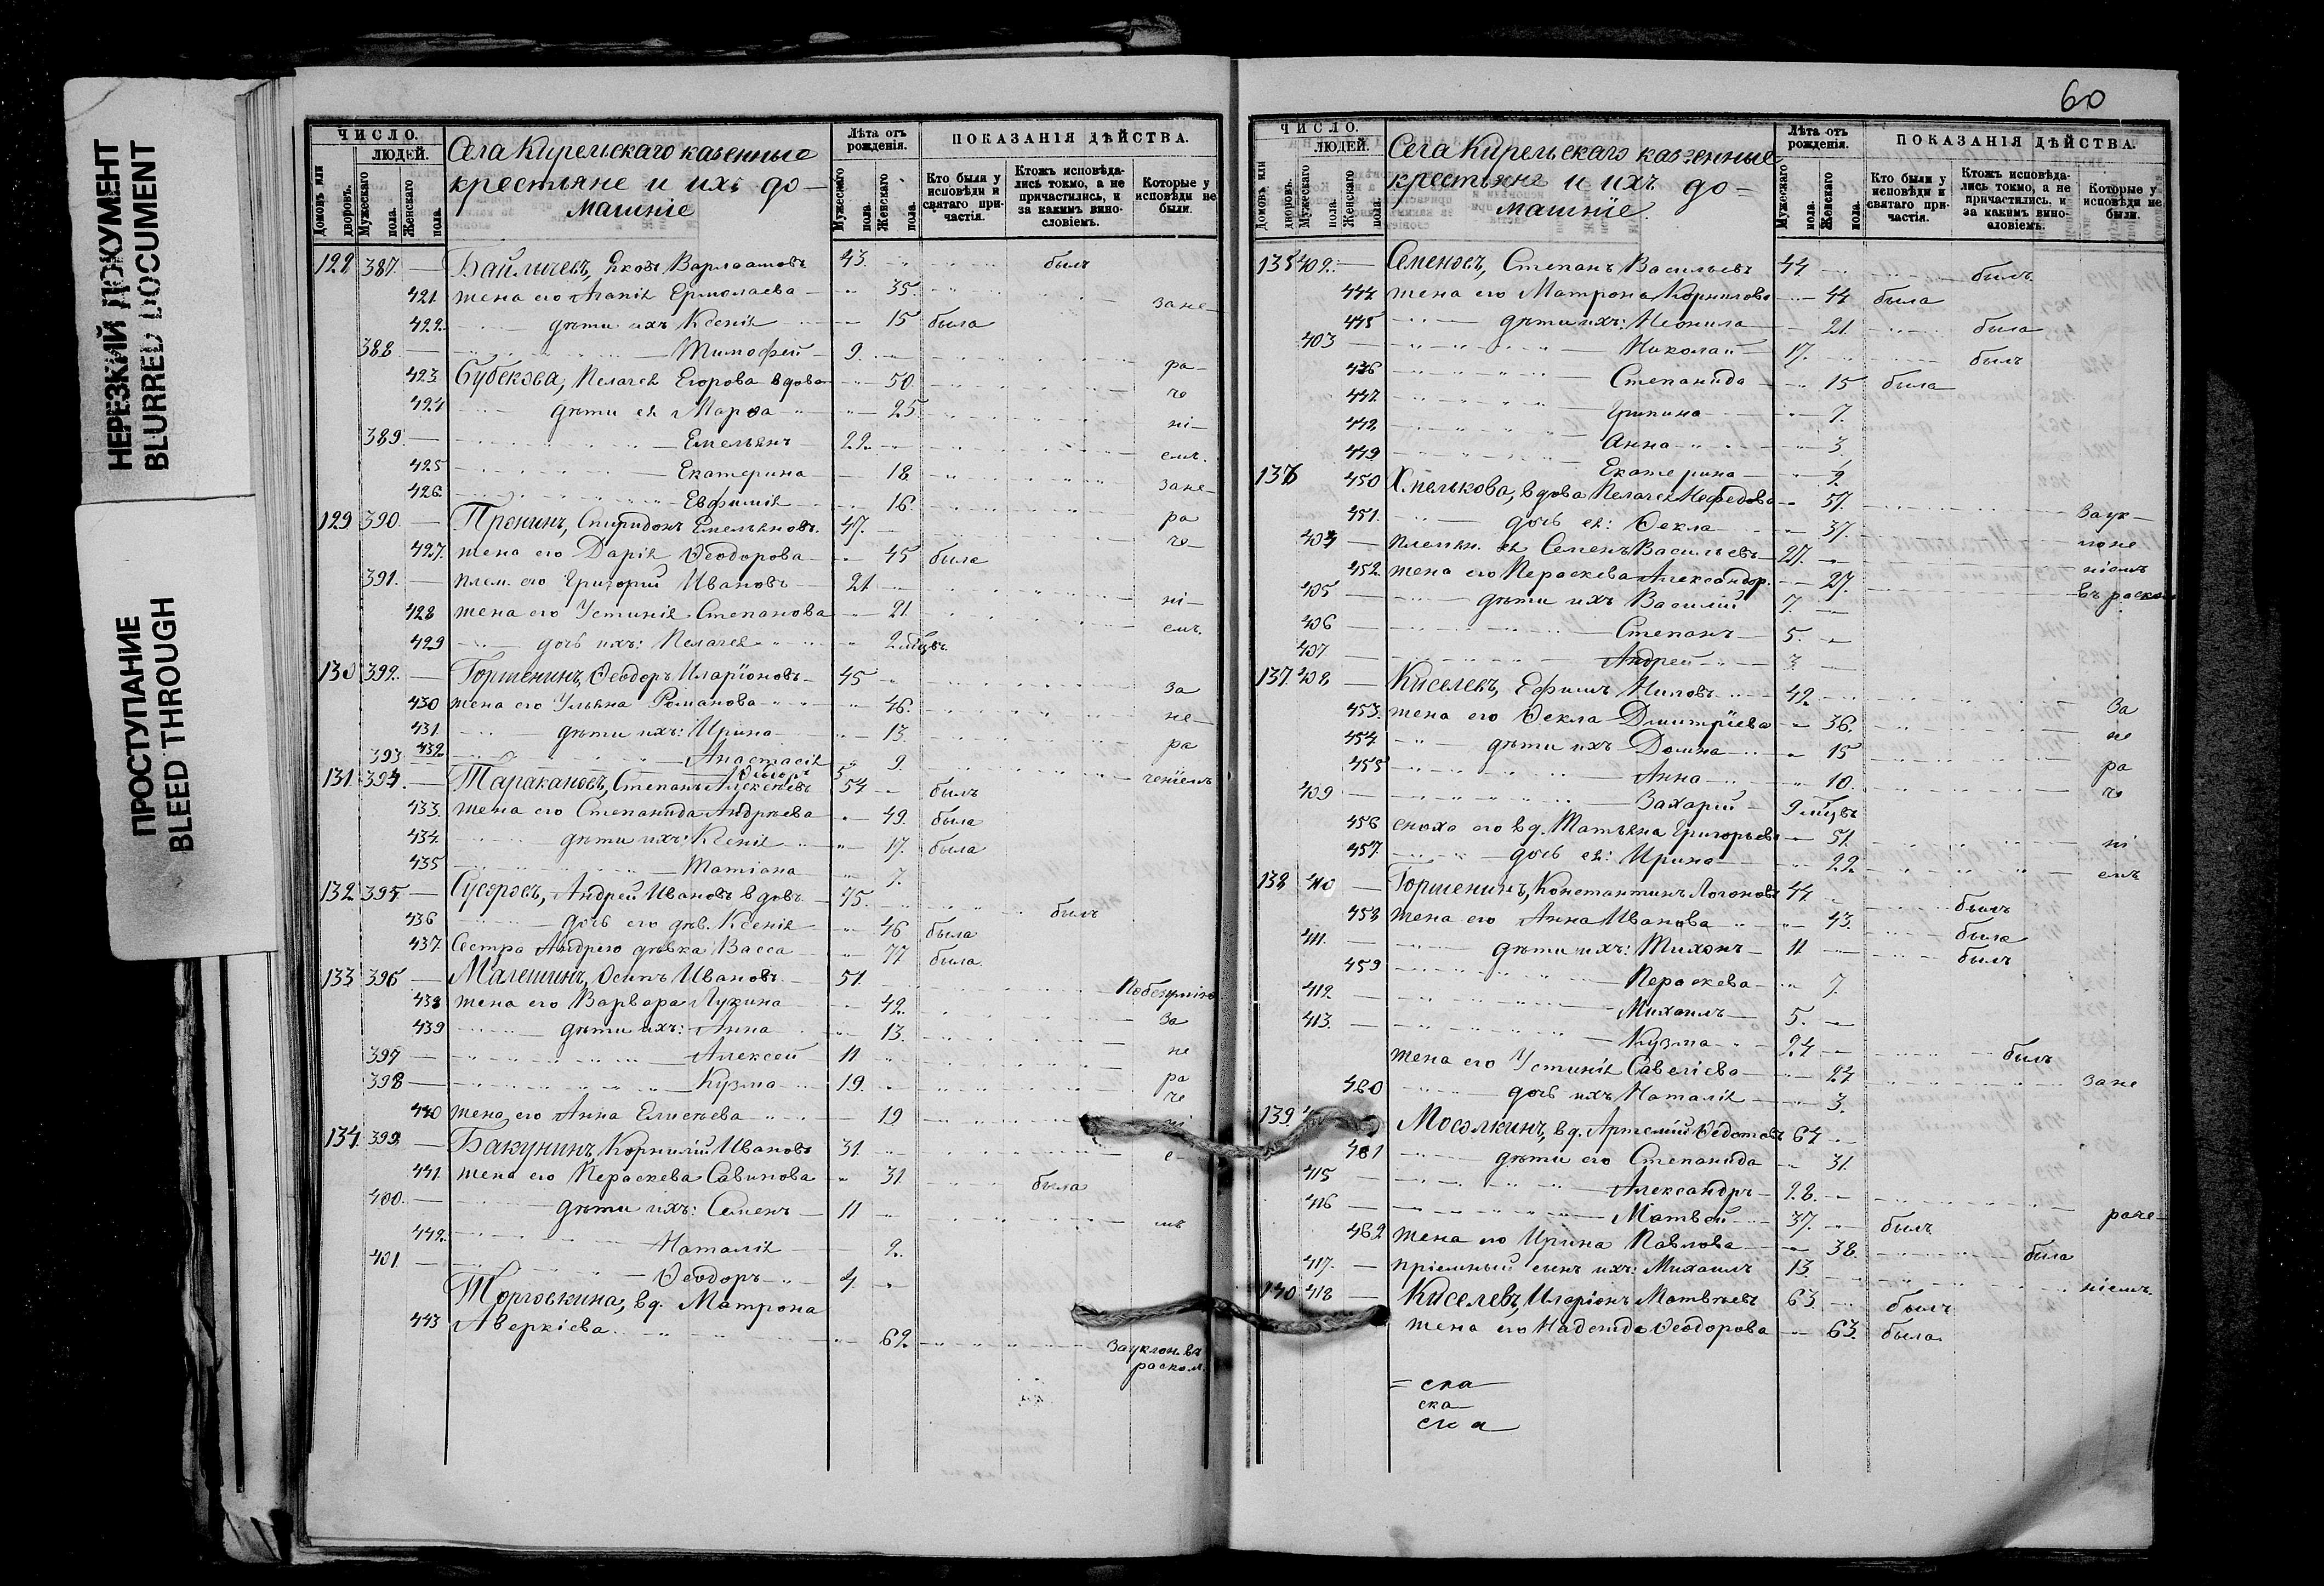 НЕРЕЗКИЙ ДОКУМЕНТ
BLURRED DOCUMENT
ПРОСТУПАНИЕ
BLEED THROUGH
ЧИСЛО. Лѣта отъ рожденія. ПОКАЗАНІЯ ДѢЙСТВА.
ЛЮДЕЙ.
Домовъ или дворовъ. Мужескаго пола. Женскаго пола. Мужескаго пола. Женскаго пола. Кто были у исповѣди и святаго причастія. Ктожъ исповѣдались токмо, а не причастились, и за какимъ винословіемъ. Которые у исповѣди не были.
Села Кирельскаго казенные
крестьяне и ихъ до-
машніе
128 387. Байлычевъ, Яковъ Варлаамовъ 43. былъ
421. жена его Агапія Ермолаева 35. зане-
422. дѣти ихъ Ксенія 15 была
388 Тимофей 9. ра-
423 Бубекова, Пелагея Егорова вдова 50. че
424 дѣти ея Марѳа 25. ні-
389. Емельянъ 22. емъ.
425 Екатерина 18. зане-
426. Евфимія 16. ра
129 390. Пронинъ, Спиридонъ Емельяновъ. 47. че-
427. жена его Дарія Ѳеодорова 45 была
391. плем. его Григорій Ивановъ 21 ні-
428 жена его Устинія Степанова 21. емъ.
429 дочь ихъ: Пелагея 2 мѣцвъ
130 392. Горшенинъ, Ѳеодоръ Иларіоновъ 45 за
430 жена его Ульяна Романова 46. не-
431. дѣти ихъ: Ирина 13. ра
432. Анастасія 9. ченіемъ
393 Ѳеодоръ 5
131. 394. Таракановъ, Степанъ Алексѣевъ 54 былъ
433. жена его Степанида Андрѣева 49. была
434. дѣти ихъ: Ксенія 17. была
435 Матіана 7.
132 395. Андрей Ивановъ вдовъ 75. былъ
436 дочь его дѣв. Ксенія 46 была
437. Сестра Андрею дѣвка Васса 77 была.
133 396 Малешинъ, Осипъ Ивановъ 51.
438 жена его Варвара Лукина 42. за
439 дѣти ихъ: Анна 13. не
397 Алексей 11 ра
398 Кузма 19. че
440 жена его Анна Елисѣева 19
134. 399. Бакунинъ, Корнилій Ивановъ 31. е-
441. жена его Пераскева Савинова 31 была
400. дѣти ихъ: Семенъ 11 мъ
442. Наталія 2.
401 Ѳеодоръ 4.
Торговкина, вд. Матрона
443 Аверкіева 62. За уклон. въ
раскол.
60
ЧИСЛО. Лѣта отъ рожденія. ПОКАЗАНІЯ ДѢЙСТВА.
ЛЮДЕЙ.
Домовъ или дворовъ. Мужескаго пола. Женскаго пола. Мужескаго пола. Женскаго пола. Кто были у исповѣди и святаго причастія. Ктожъ исповѣдались токмо, а не причастились, и за какимъ винословіемъ. Которые у исповѣди не были.
Села Кирельскаго казенные
крестьяне и ихъ до-
машніе.
135 402. Семеновъ, Степанъ Васильевъ 44 былъ.
444. жена его Матрона Корнилова 44 была
445 дѣти ихъ: Неонила 21. была
403 Николай 17. былъ
446 Степанида 15 была
447. Грипина 7.
448 Анна 3.
449 Екатерина 2.
136 450 Хмелькова, вдова Пелагея Мефедова 57. За ук-
451. дочь ея: Ѳекла 37. лоне
404 племян. ея Семенъ Васильевъ 27. ніемъ
452. жена его Пераскева Александр. 27. въ раскол
405 дѣти ихъ Василій 7.
406 Степанъ 5.
407 Андрей 3
137. 408 Киселевъ, Ефимъ Ниловъ 42. За
453. жена его Ѳекла Дмитріева 36. не
454. дѣти ихъ Домна 15 ра
455 Анна 10. че
409 Захарій 9 мѣцвъ
456 сноха его вд. Татьяна Григорьева 51. ні
457. дочь ея: Ирина 22. емъ
138 410 Горшенинъ, Константинъ 44 былъ
458 жена его Анна Иванова 43. была
411. дѣти ихъ: Тихонъ 11 былъ
459 Пераскева 7.
412 Михаилъ 5.
413. Кузма 24 былъ
жена его Устинія Савеліева 24 зане
460 дочь ихъ Наталія 3.
139 Мосолкинъ, вд. Артемій Ѳедотовъ 64
461 дѣти его Степанида 31.
415 Александръ 28.
416 Матвей 37. былъ раче-
462 жена его Ирина Павлова 38. была
417. пріемный сынъ ихъ: Михаилъ 13. ніемъ.
140 418 Киселевъ, Иларіонъ Матвѣевъ 63 былъ
жена его Надежда Ѳеодорова 63. была.
= ска
ска
ска